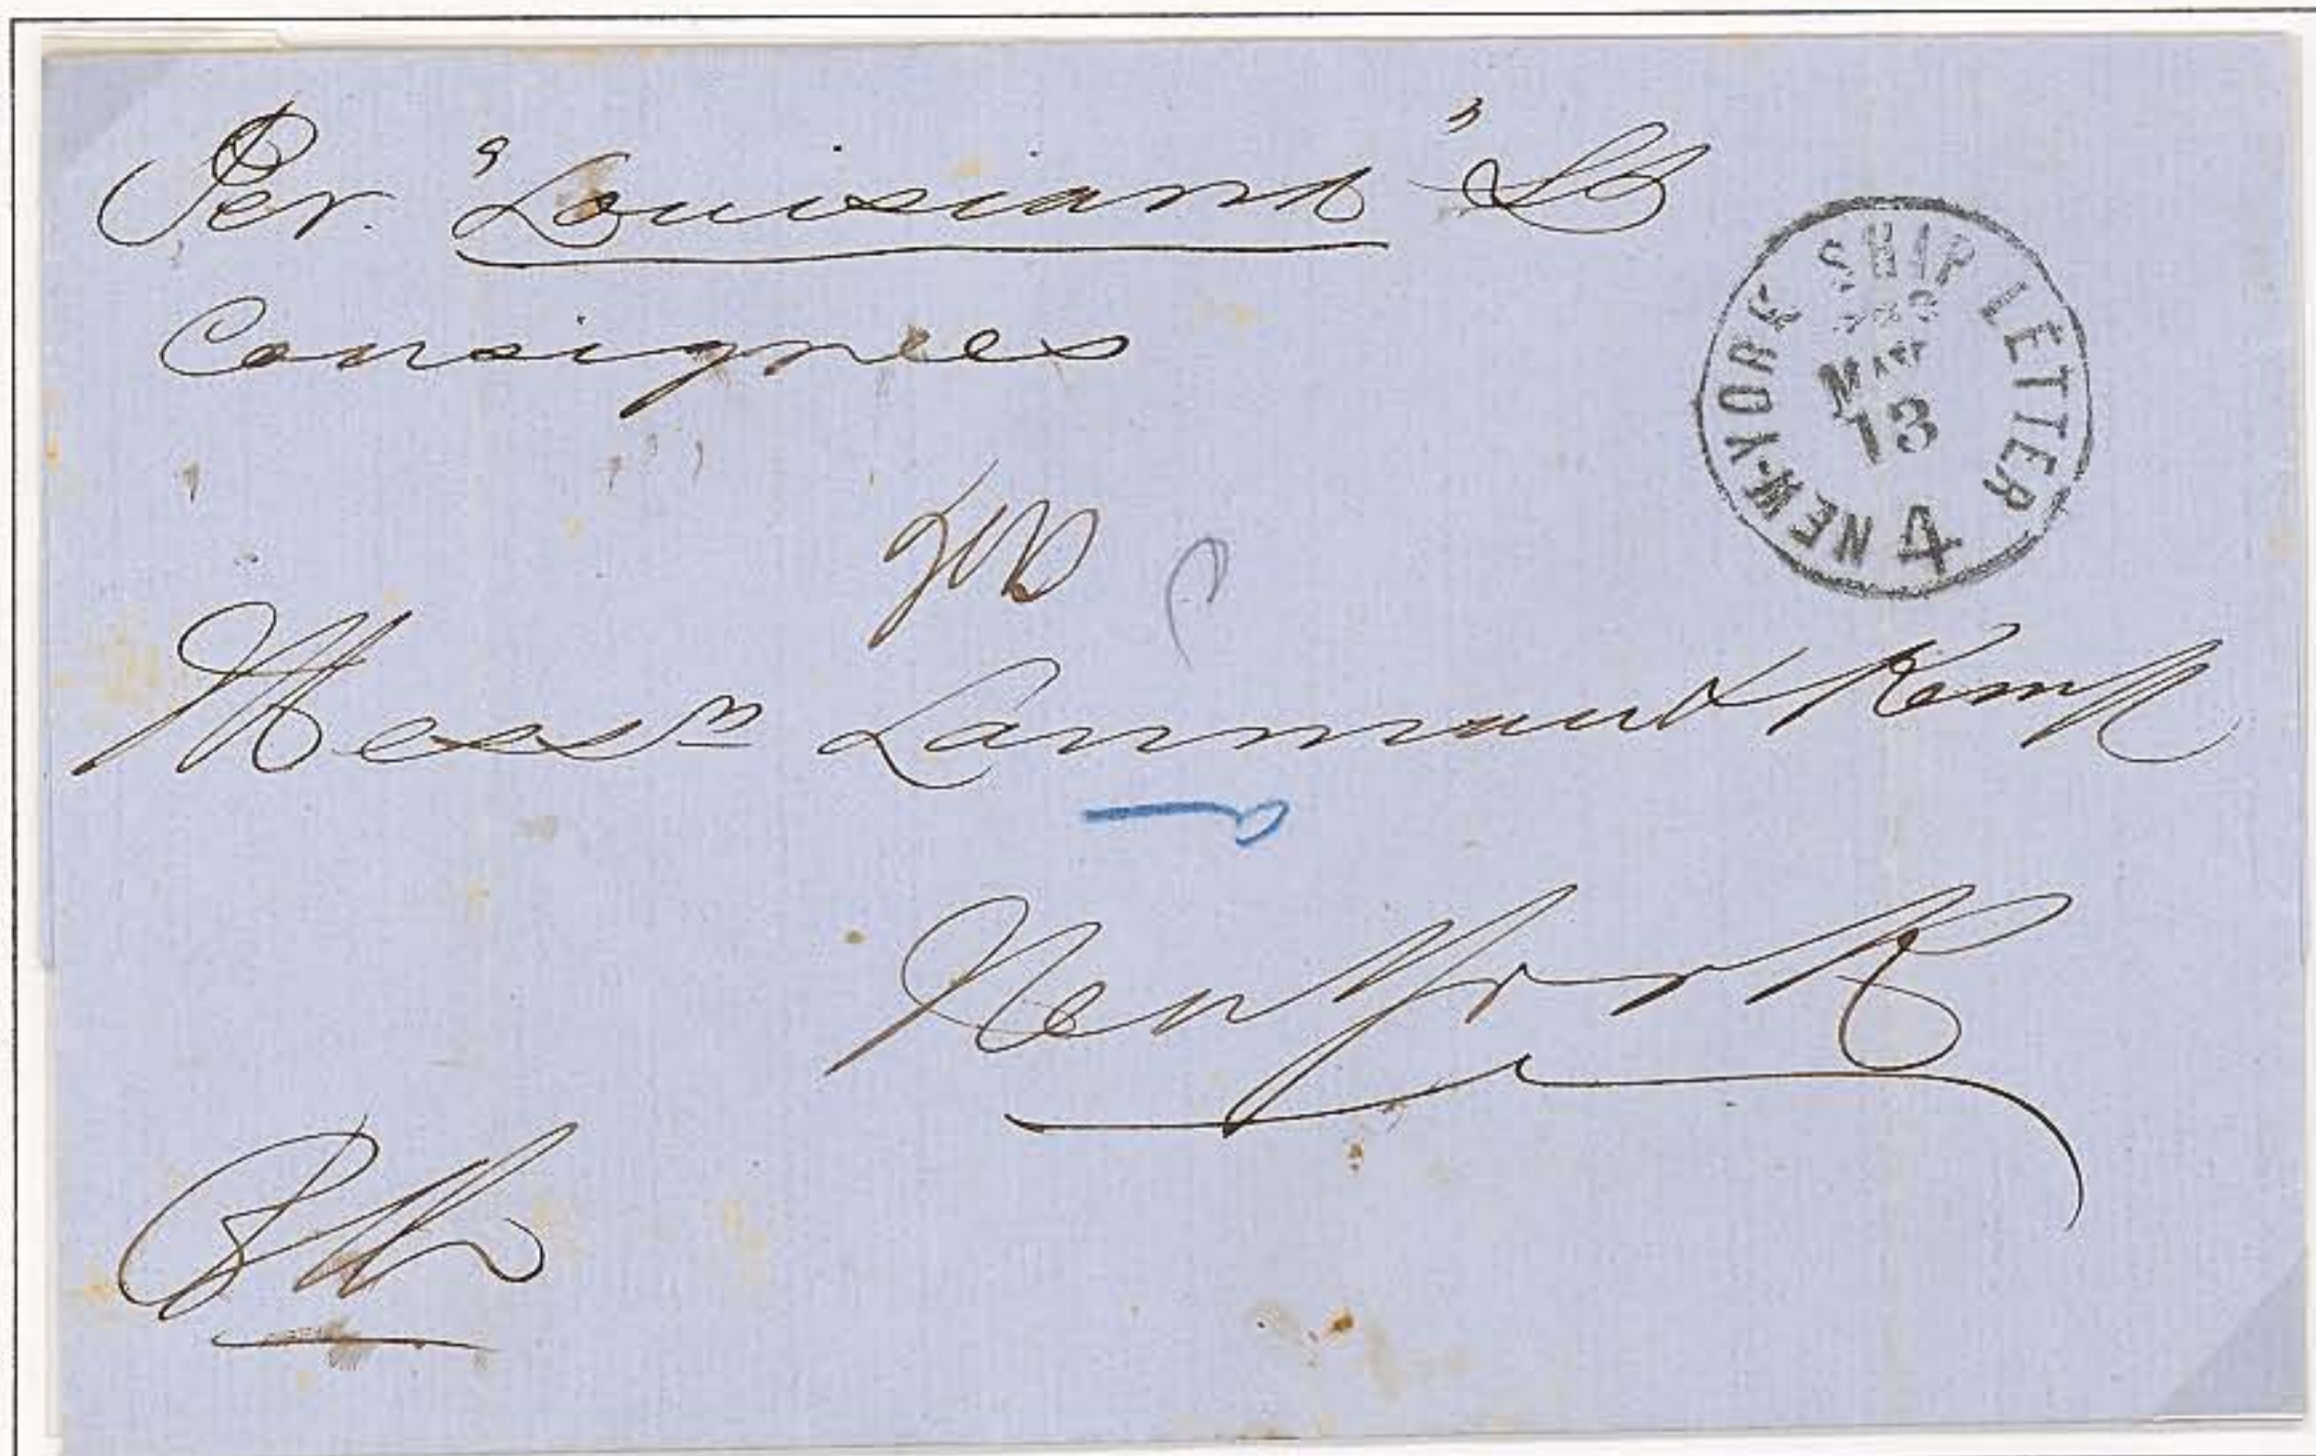 Per "Louisiana"
Consignees
NEW-YORK SHIP LETTER
MAY
13
4
Messrs Lanman & Kemp
New York